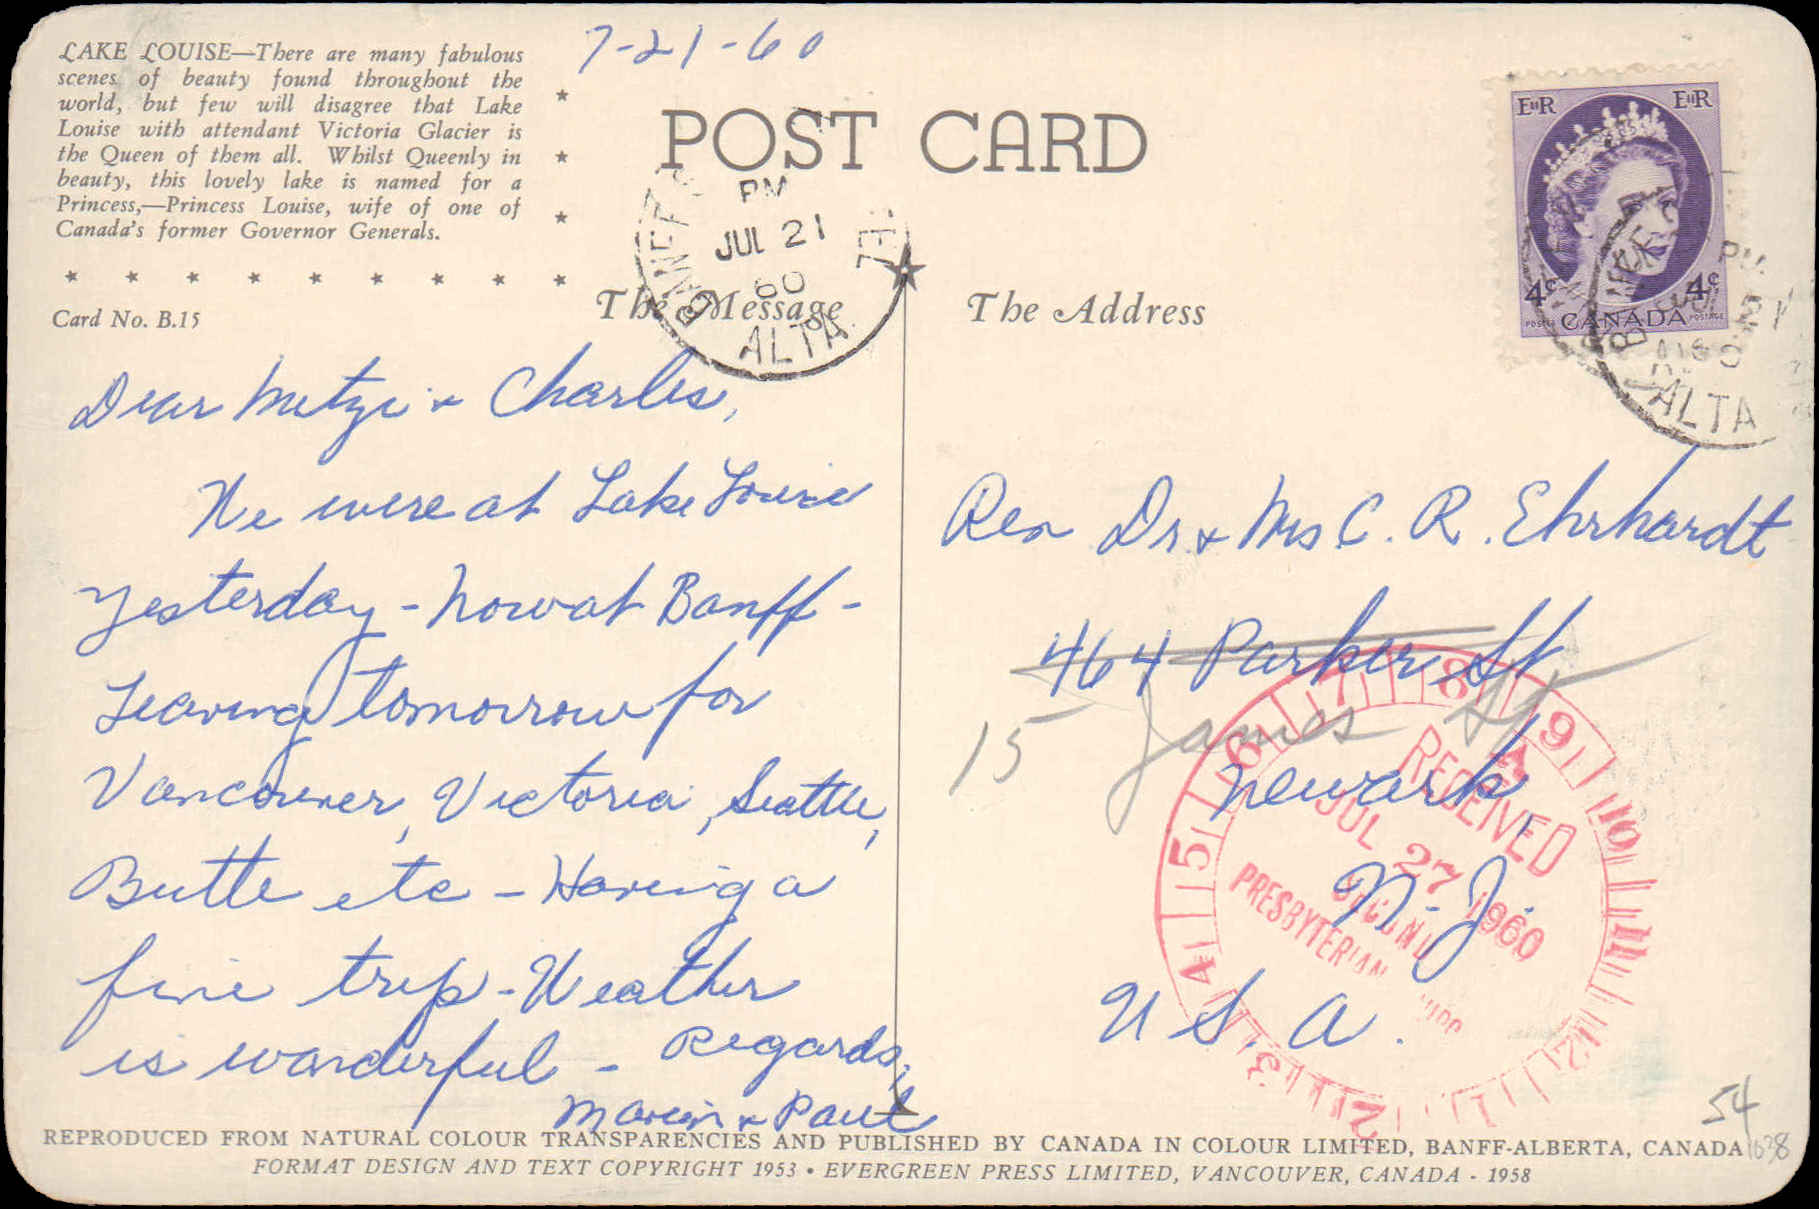 LAKE LOUISE—There are many fabulous
scenes of beauty found throughout the
world, but few will disagree that Lake
Louise with attendant Victoria Glacier is
the Queen of them all. Whilst Queenly in
beauty, this lovely lake is named for a
Princess,—Princess Louise, wife of one of
Canada's former Governor Generals.
Card No. B.15
7-21-60
POST CARD
The Message
The Address
BANFF
PM
JUL 21
60
ALTA.
E II R
E II R
4¢
4¢
POSTES CANADA POSTAGE
PM
21
ALTA
Dear Mitzi & Charles,
We were at Lake Louise
Yesterday - Now at Banff -
Leaving tomorrow for
Vancouver, Victoria, Seattle,
Butte etc - Having a
fine trip - Weather
is wonderful - Regards,
& Paul
Rev Dr & Mrs C. R. Ehrhardt
464 Parker St
15 James St
Newark,
N. J.
U. S. A.
RECEIVED
JUL 27 1960
SECOND
PRESBYTERIAN
2 3 4 5 6 7 8 9 10 11 12 1
54
1638
REPRODUCED FROM NATURAL COLOUR TRANSPARENCIES AND PUBLISHED BY CANADA IN COLOUR LIMITED, BANFF-ALBERTA, CANADA
FORMAT DESIGN AND TEXT COPYRIGHT 1953 • EVERGREEN PRESS LIMITED, VANCOUVER, CANADA - 1958